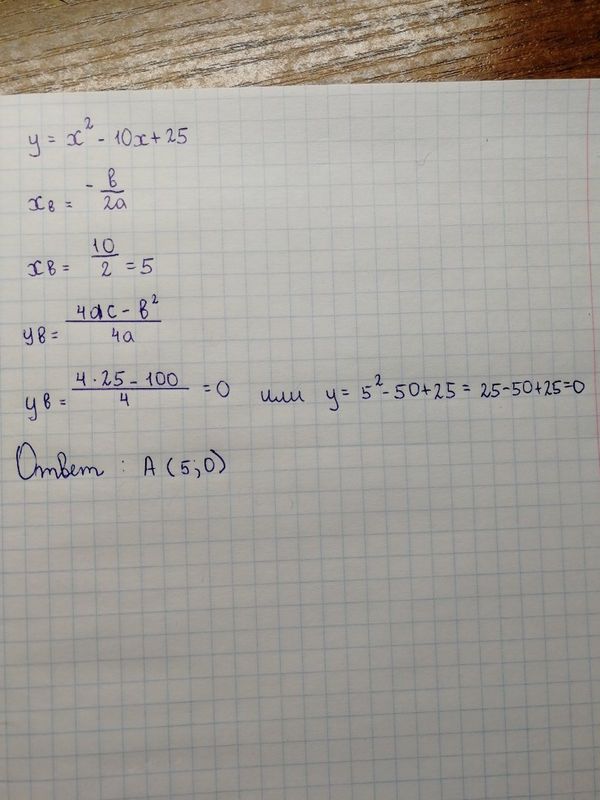 y = x² - 10x + 25
xв = - в/2a
xв = 10/2 = 5
yв = (4ac - в²)/4a
yв = (4 · 25 - 100)/4 = 0 или y = 5² - 50 + 25 = 25 - 50 + 25 = 0
Ответ : A (5; 0)